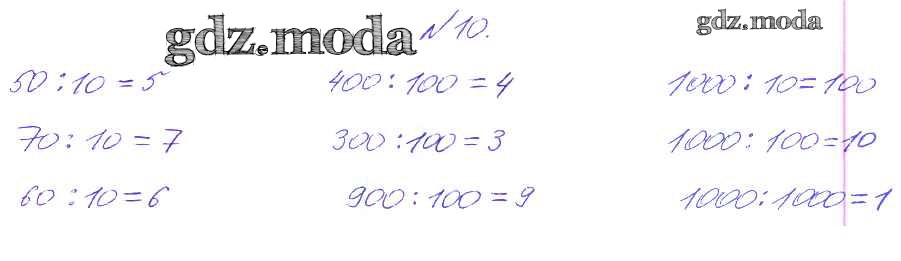 gdz.moda №10. gdz.moda
50 : 10 = 5 400 : 100 = 4 1000 : 10 = 100
70 : 10 = 7 300 : 100 = 3 1000 : 100 = 10
60 : 10 = 6 900 : 100 = 9 1000 : 1000 = 1